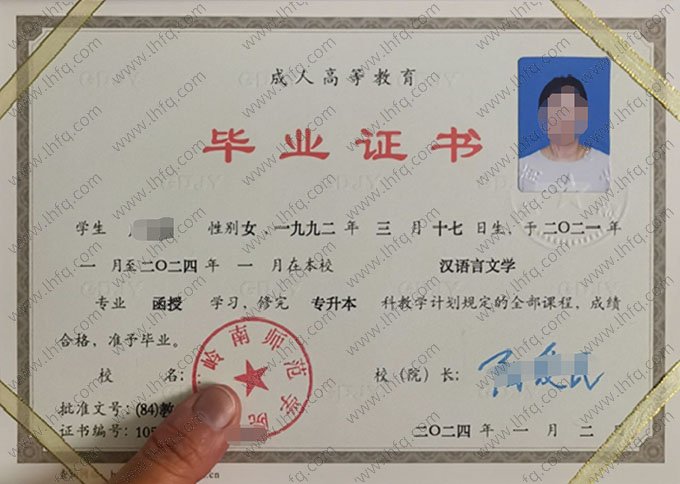 成人高等教育
毕业证书
学生 性别女，一九九二年 三 月 十七 日生，于二〇二一年
一 月至二〇二四年 一 月在本校 汉语言文学
专业 函授 学习，修完 专升本 科教学计划规定的全部课程，成绩
合格，准予毕业。
校 名： 校（院）长：
岭南师范学院
批准文号：(84)教
证书编号：105
二〇二四 年 一 月 二 日
www.lhfq.com